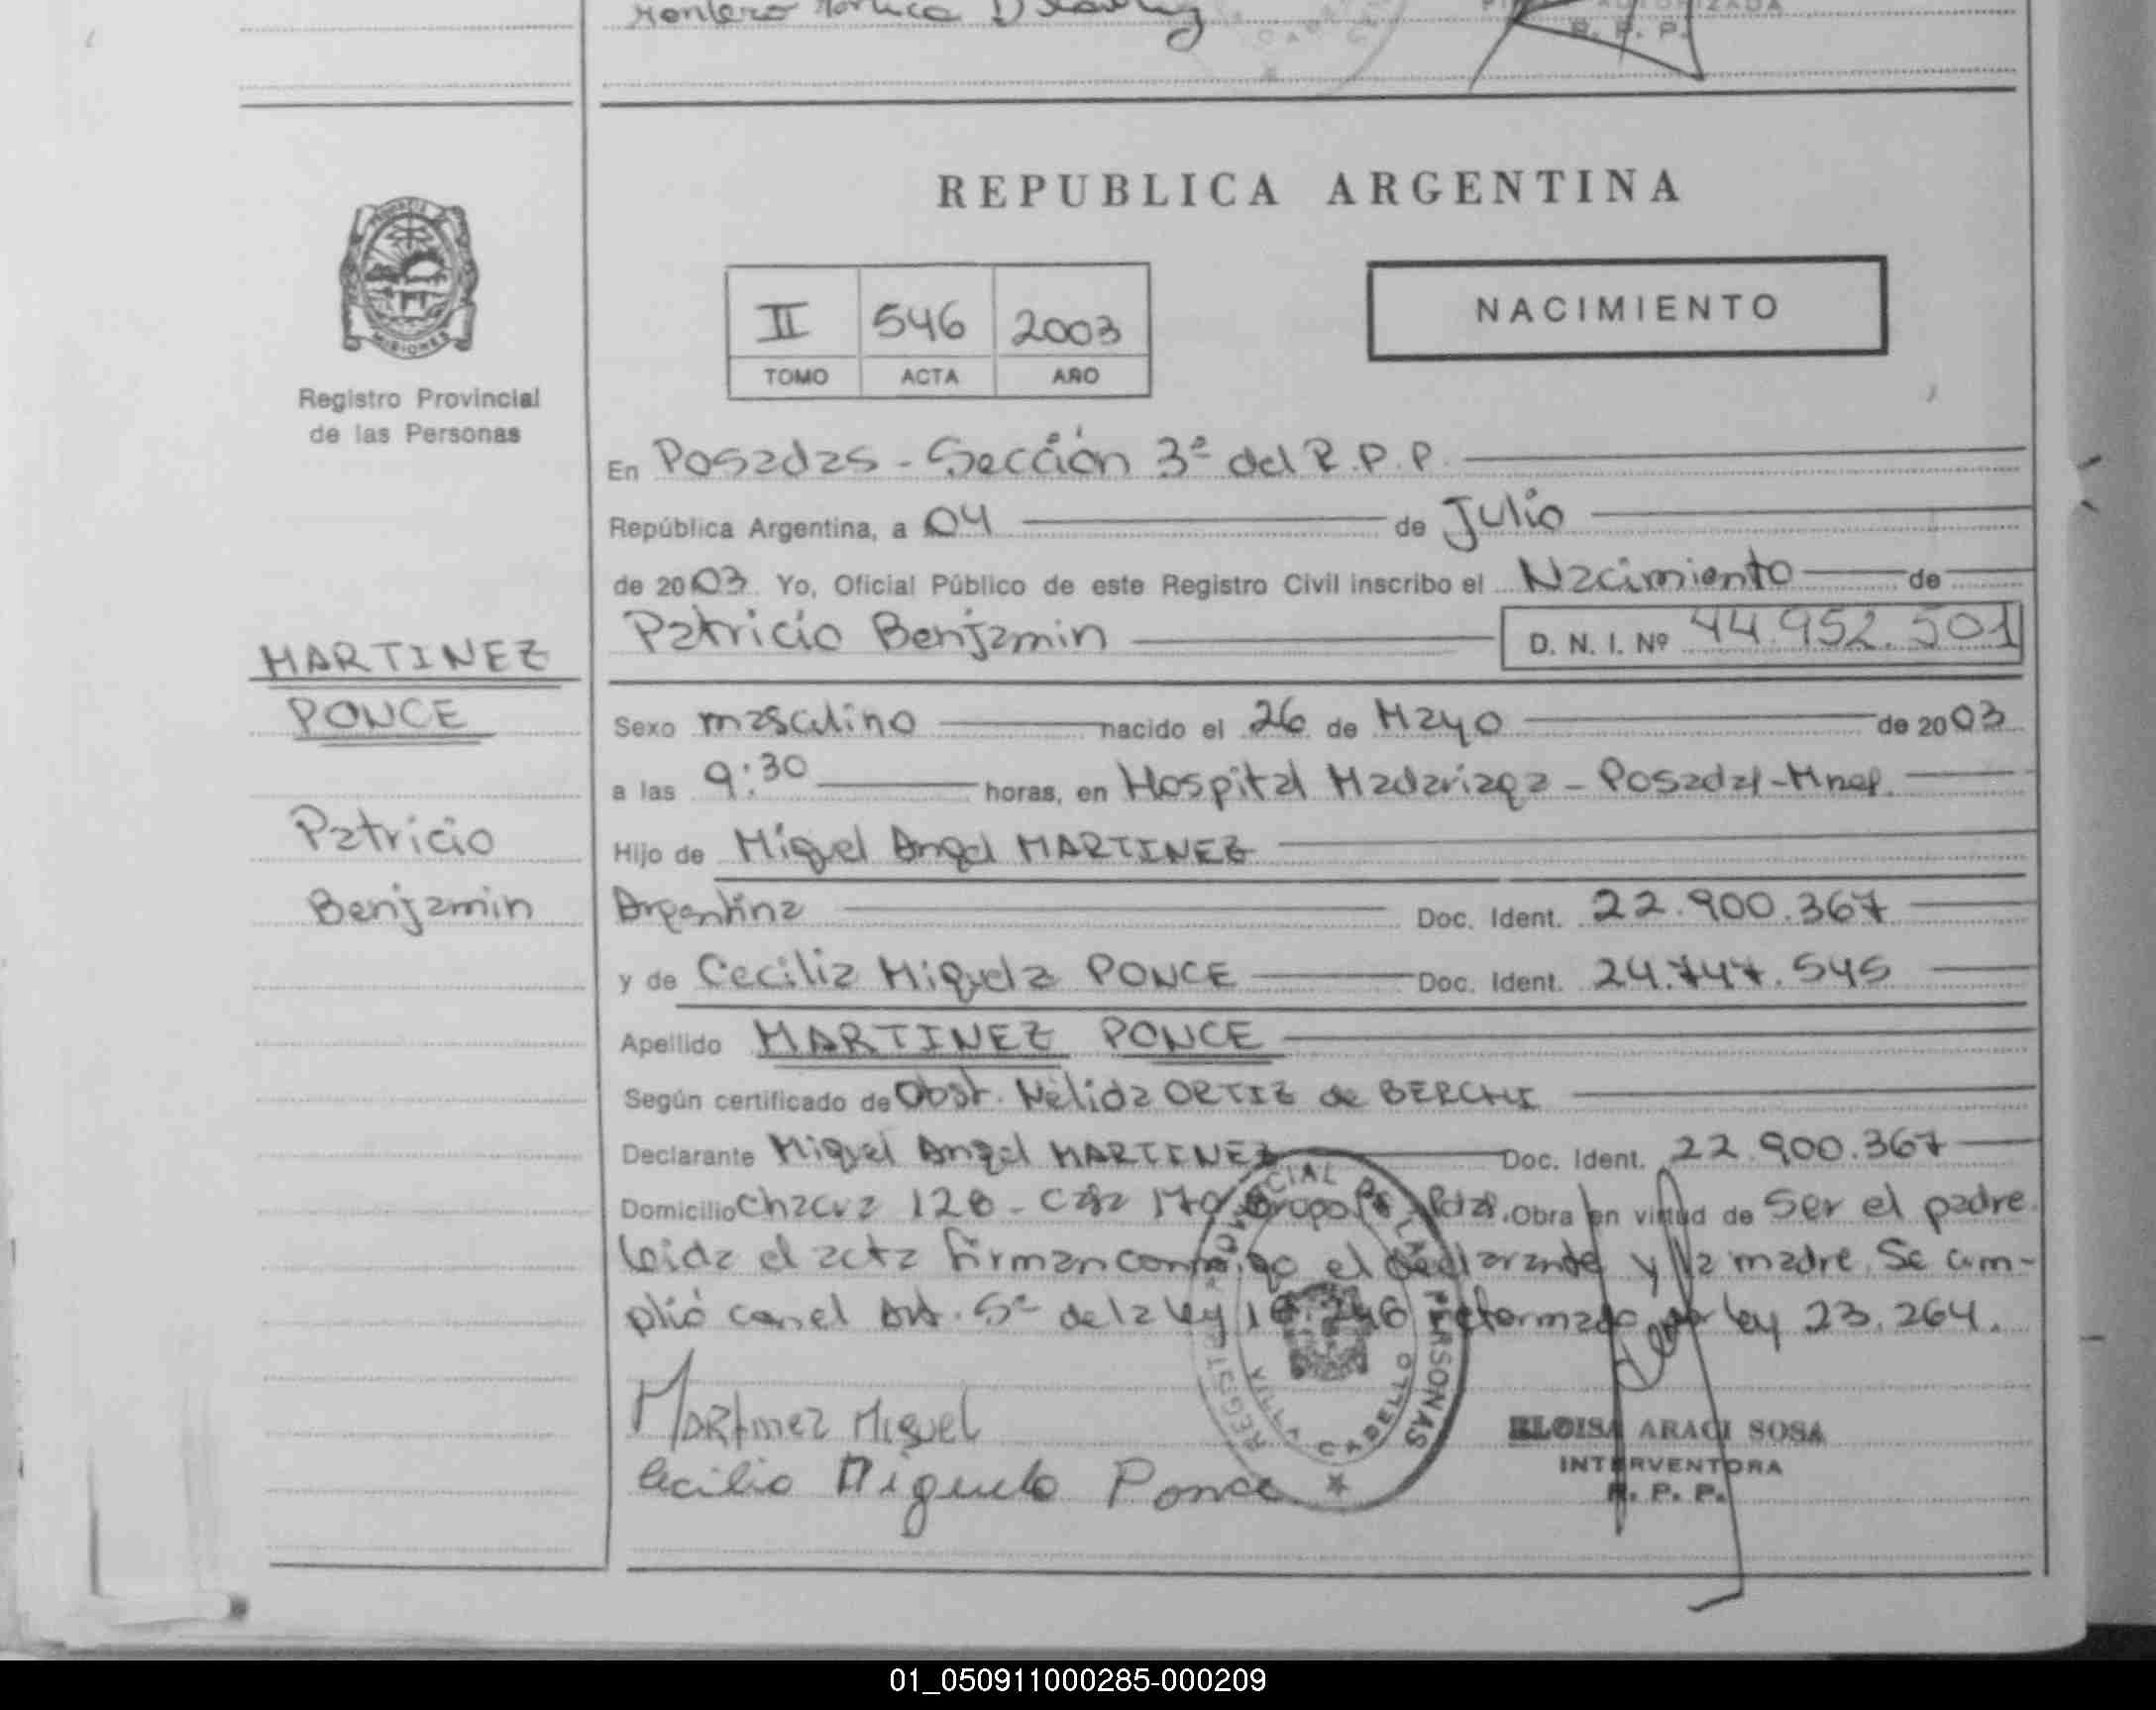 REPUBLICA ARGENTINA
II 546 2003
TOMO ACTA AÑO
NACIMIENTO
MISIONES
Registro Provincial
de las Personas
MARTINEZ
PONCE
Patricio
Benjamin
En Posadas - Sección 3ª del R.P.P.
República Argentina, a 04 de Julio
de 2003. Yo, Oficial Público de este Registro Civil inscribo el Nacimiento de
Patricio Benjamin D. N. I. Nº 44.952.501
Sexo masculino nacido el 26 de Mayo de 2003
a las 9:30 horas, en Hospital Madariaga - Posadas - Mnes.
Hijo de Miguel Angel MARTINEZ
Argentina Doc. Ident. 22.900.367
y de Cecilia Miguela PONCE Doc. Ident. 24.747.545
Apellido MARTINEZ PONCE
Según certificado de Obst. Nélida ORTIZ de BERCHI
Declarante Miguel Angel MARTINEZ Doc. Ident. 22.900.367
Domicilio Chacra 128 - Casa Pdas. Obra en virtud de Ser el padre.
Leida el acta firman conmigo el declarante y la madre. Se cum-
plió con el Art. 5º de la ley reformado por ley 23.264.
Martinez Miguel
Cecilia Miguela Ponce
REGISTRO PROVINCIAL DE LAS PERSONAS
VILLA CABELLO
ELOISA ARACI SOSA
INTERVENTORA
R. P. P.
01_050911000285-000209